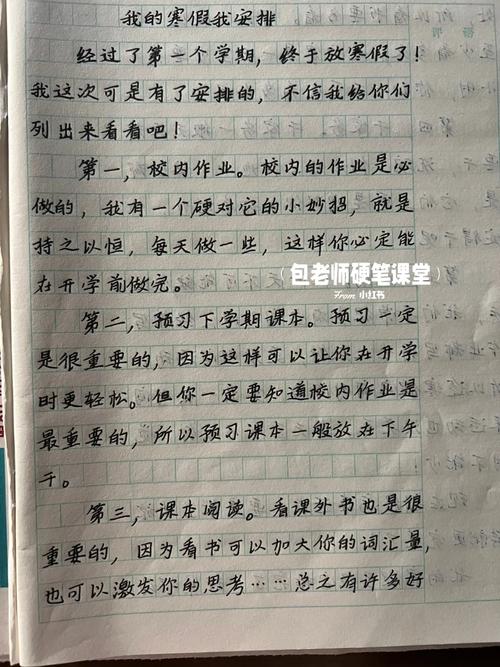 我的寒假我安排
经过了第一个学期，终于放寒假了！
我这次可是有了安排的，不信我给你们
列出来看看吧！
第一，校内作业。校内的作业是必
做的，我有一个硬对它的小妙招，就是
持之以恒，每天做一些，这样你必定能
在开学前做完。
（包老师硬笔课堂）
From 小红书
第二，预习下学期课本。预习一定
是很重要的，因为这样可以让你在开学
时更轻松。但你一定要知道校内作业是
最重要的，所以预习课本一般放在下午
干。
第三，课本阅读。看课外书也是很
重要的，因为看书可以加大你的词汇量，
也可以激发你的思考……总之有许多好